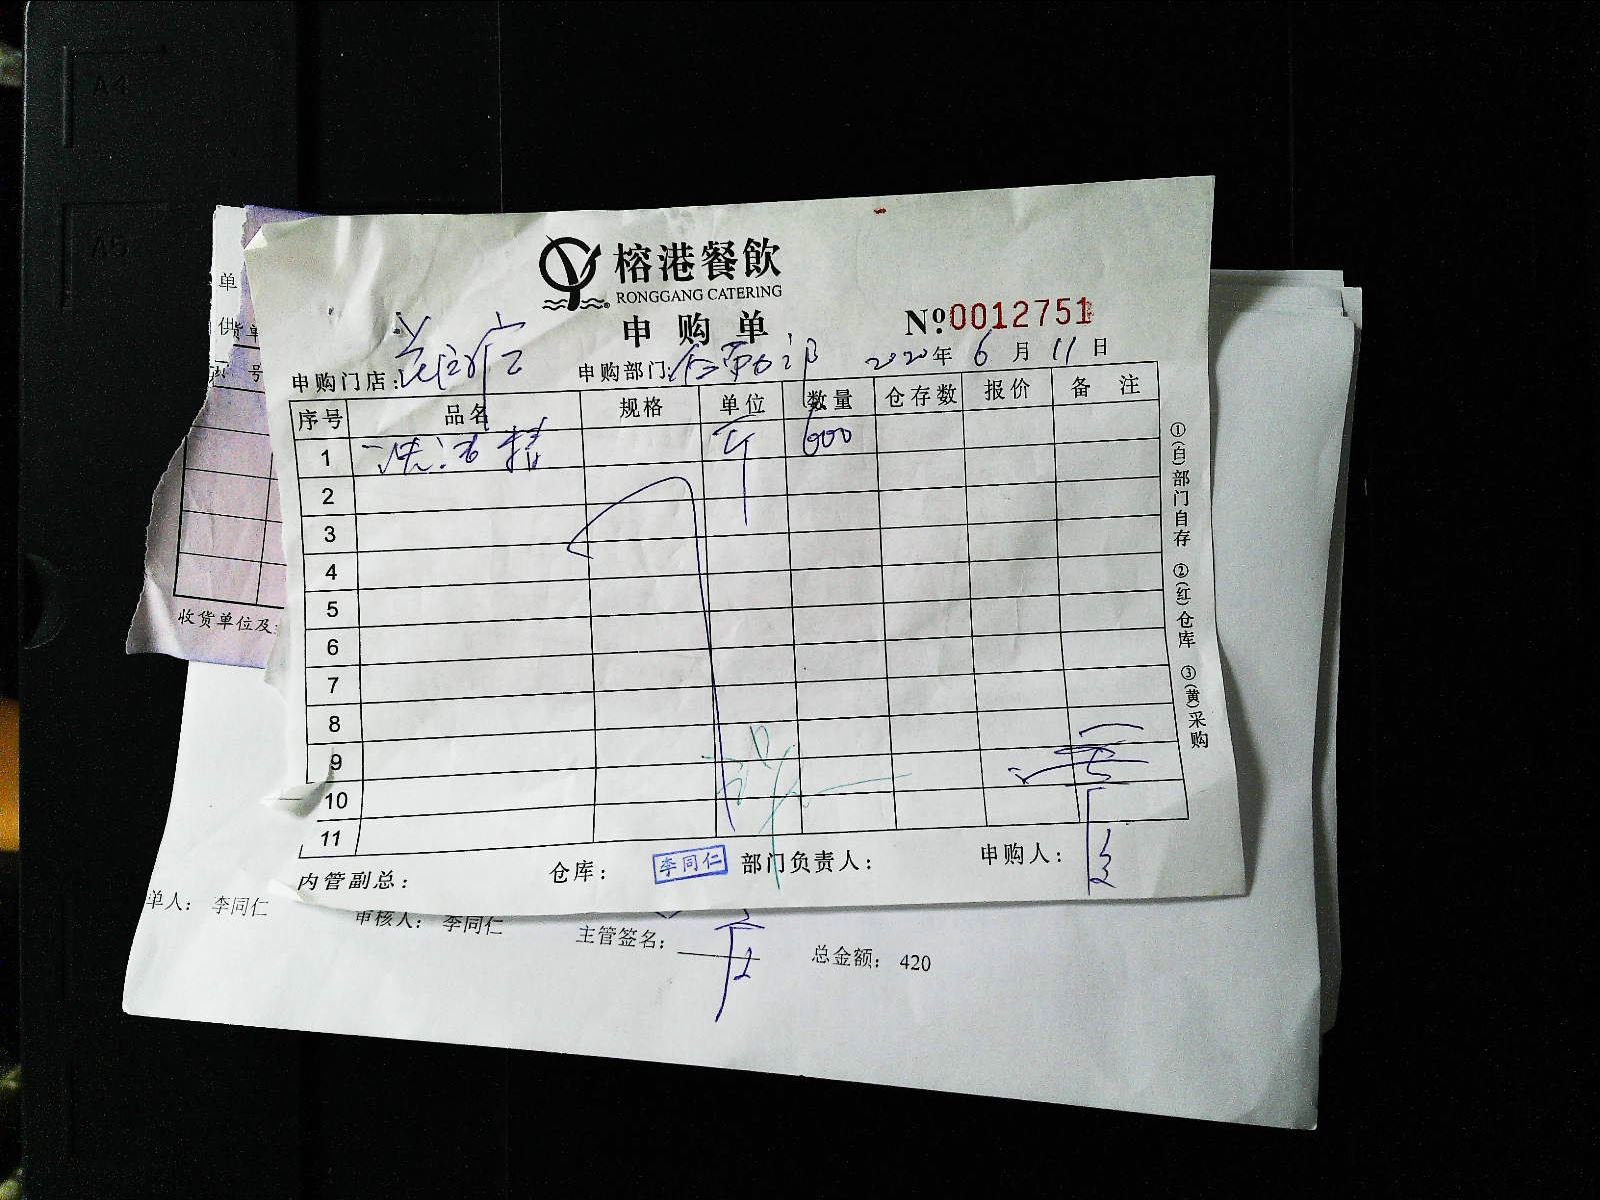 A4
A5
榕港餐飲
RONGGANG CATERING
申购单
№:0012751
申购门店:
申购部门: 2020年6月11日
序号 品名 规格 单位 数量 仓存数 报价 备注
1 洗洁精 斤 600
2
3
4
5
6
7
8
9
10
11
内管副总: 仓库: 李同仁 部门负责人: 申购人:
①(白)部门自存 ②(红)仓库 ③(黄)采购
单
供货单
号
收货单位及
单人: 李同仁 审核人: 李同仁 主管签名: 总金额: 420